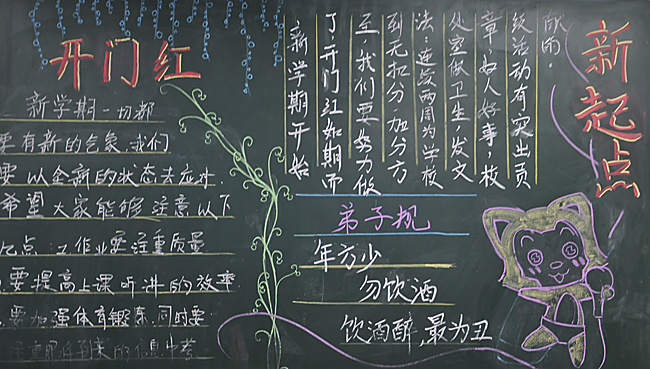 开门红
新学期一切都
要有新的气象,我们
要以全新的状态去应对.
希望大家能够注意以下
几点:1.作业要注重质量
要提高上课听讲的效率
要加强体育锻炼,同时要
新学期开始
了,开门红如期而
至,我们要努力做
到无扣分,加分方
法:连发两周为学校
处室做卫生,发文
章,好人好事,校
级活动有突出贡
献的.
弟子规
年方少
勿饮酒
饮酒醉,最为丑
新起点